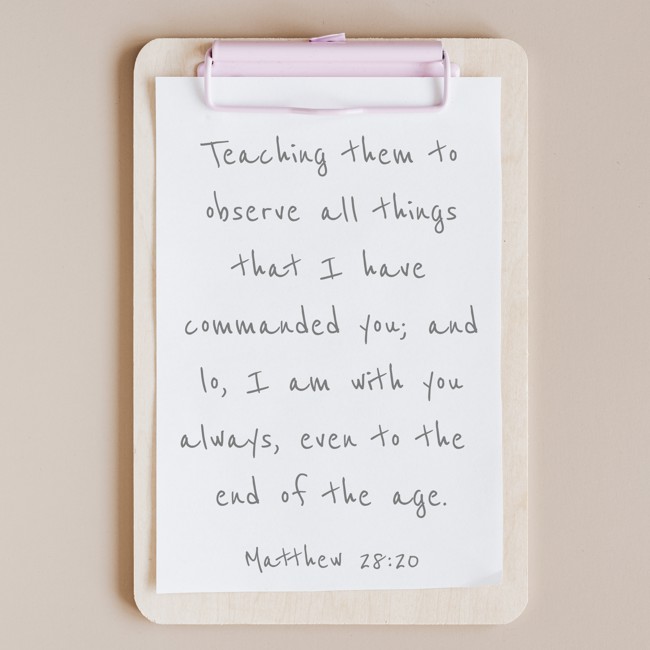 Teaching them to
observe all things
that I have
commanded you; and
lo, I am with you
always, even to the
end of the age.
Matthew 28:20